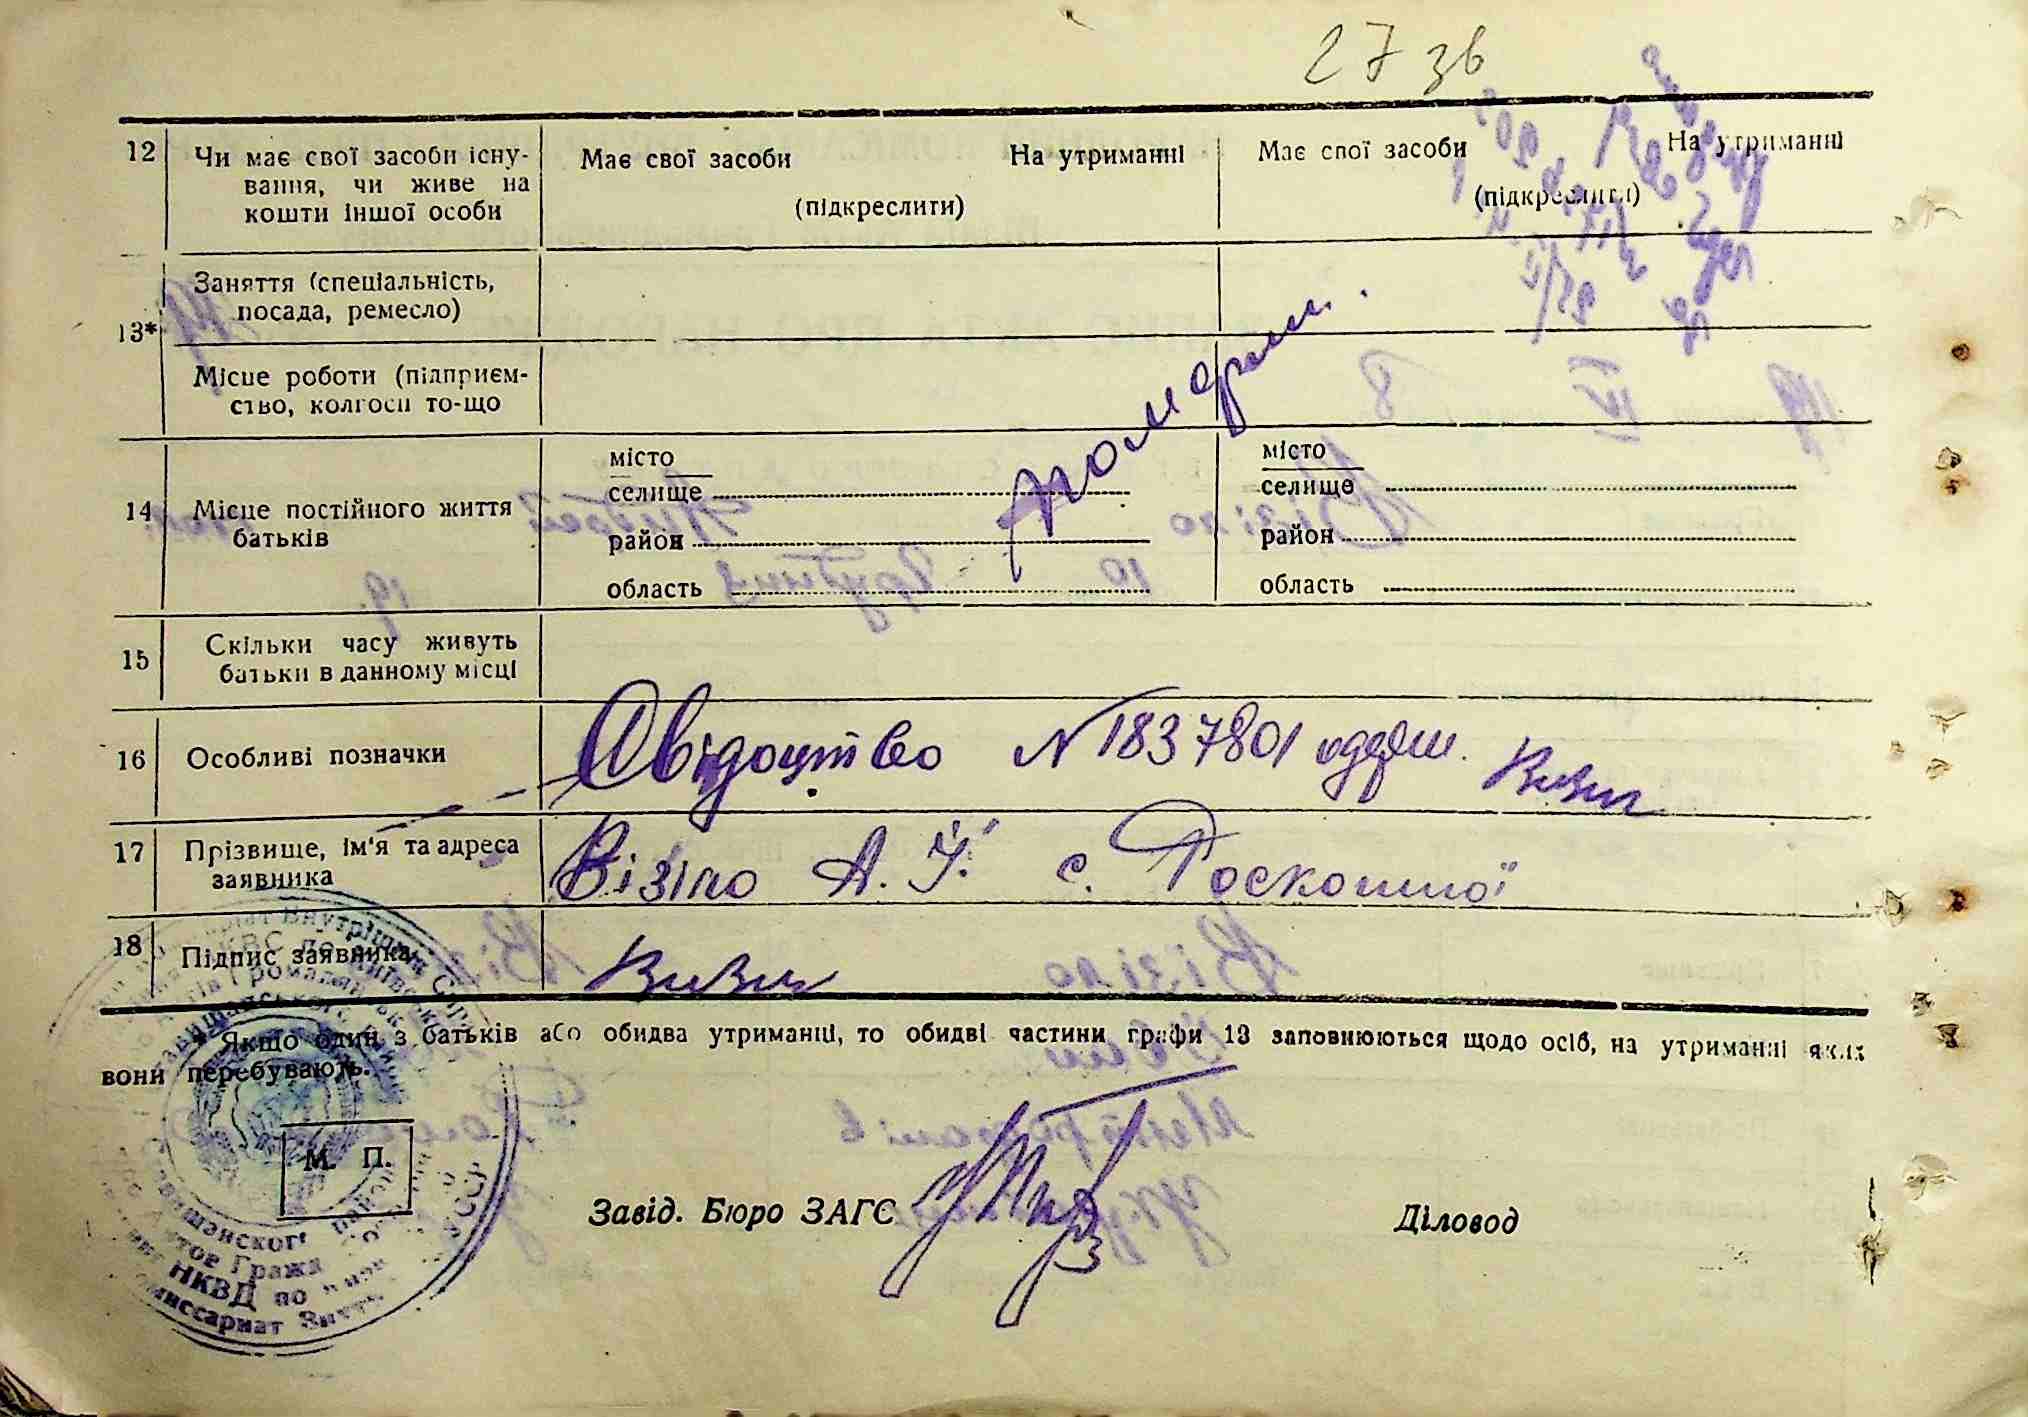 27 зв
12 Чи має свої засоби існу-
вання, чи живе на
кошти іншої особи
Має свої засоби На утриманні
(підкреслити)
Має свої засоби На утриманні
(підкреслити)
13* Заняття (спеціальність,
посада, ремесло)
Місце роботи (підприєм-
ство, колгосп то-що
14 Місце постійного життя
батьків
місто
селище
район
область
місто
селище
район
область
15 Скільки часу живуть
батьки в данному місці
16 Особливі позначки
Свідоцтво N 1837801 одерж.
17 Прізвище, ім'я та адреса
заявника
Візіло А. Й. с. Роскошної
18 Підпис заявника
* Якщо один з батьків або обидва утриманці, то обидві частини графи 13 заповнюються щодо осіб, на утриманні яких
вони перебувають.
М. П.
Завід. Бюро ЗАГС
Діловод